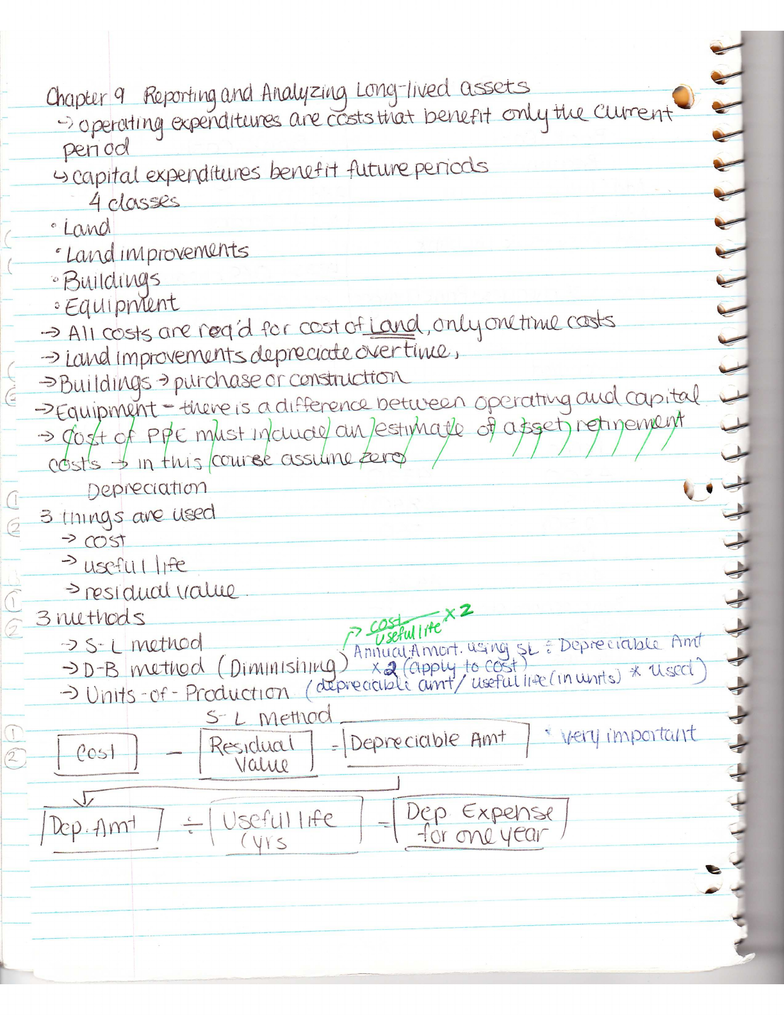 Chapter 9 Reporting and Analyzing Long-lived assets
→ operating expenditures are costs that benefit only the current
period
↳ capital expenditures benefit future periods
4 classes
• Land
• Land improvements
• Buildings
• Equipment
→ All costs are req'd for cost of Land, only one time costs
→ Land improvements depreciate over time,
→ Buildings → purchase or construction
→ Equipment - there is a difference between operating and capital
→ Cost of PPE must include an estimate of asset retirement
costs → in this course assume zero
Depreciation
3 things are used
→ cost
→ useful life
→ residual value.
3 methods
→ cost / useful life × 2
→ S-L method
Annual Amort. using SL ÷ Depreciable Amt
→ D-B method (Diminishing) × 2 (apply to cost)
→ Units-of-Production (depreciable amt / useful life (in units) * used)
S-L Method
Cost - Residual Value = Depreciable Amt * very important
Dep. Amt ÷ Useful life (yrs = Dep Expense for one year